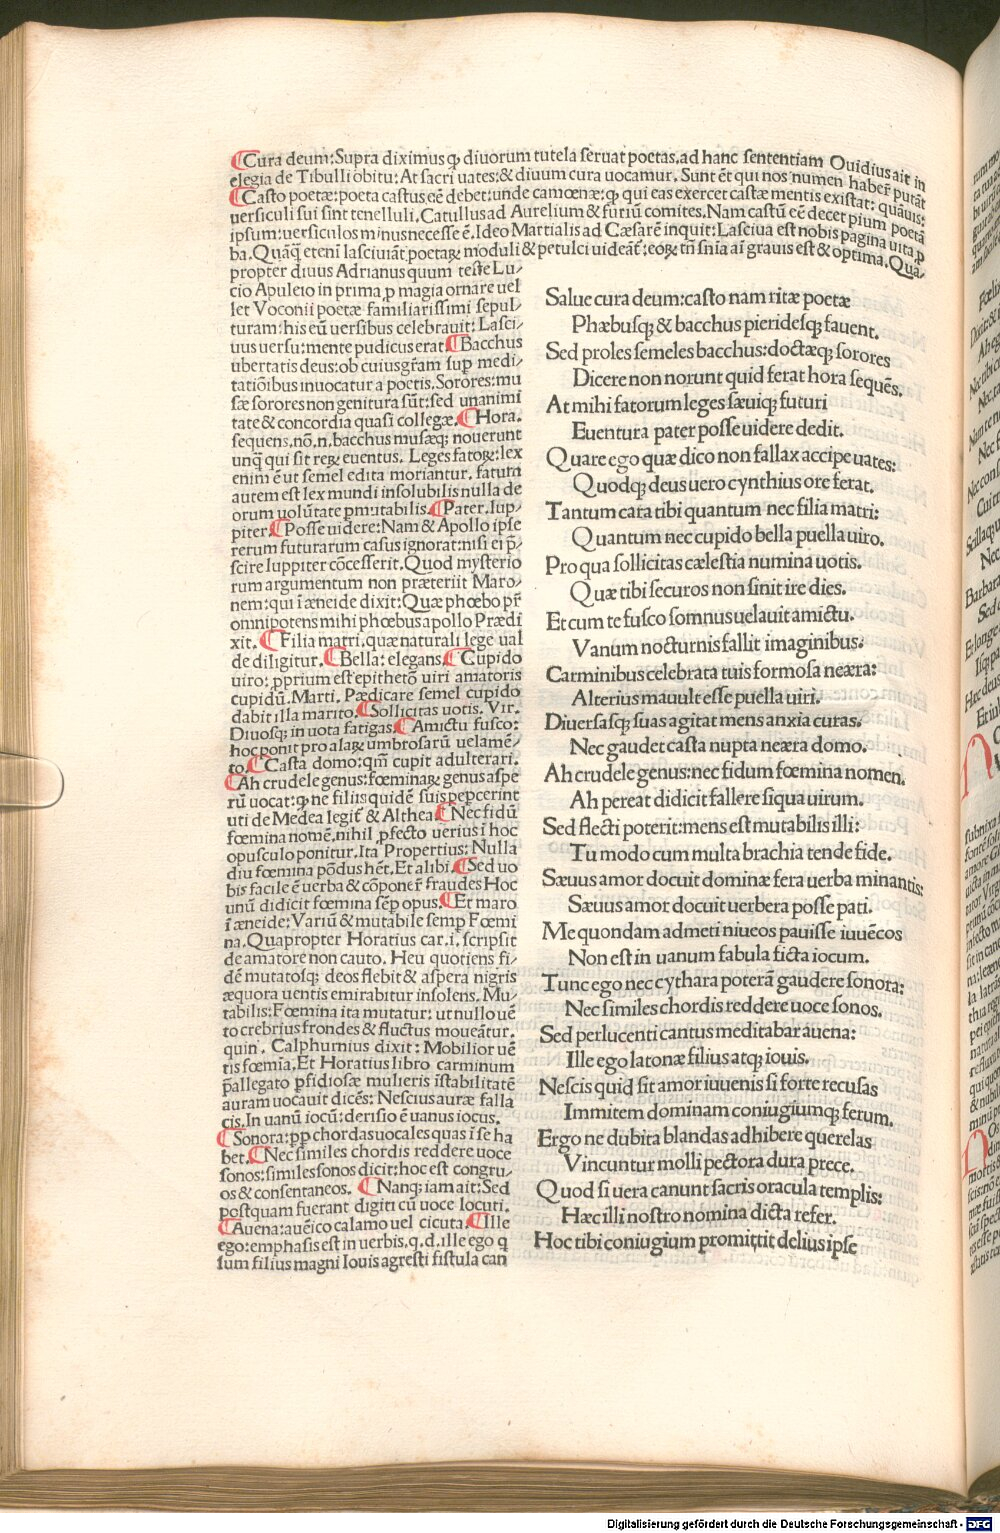 Cura deum:Supra diximus ꝙ diuorum tutela seruat poetas.ad hanc sententiam Ouidius ait in
elegia de Tibulli obitu: At sacri uates:& diuum cura uocamur. Sunt ēt qui nos numen haber̄ putāt
Casto poetæ: poeta castus eē debet: unde camœnæ: ꝙ qui eas exercet castæ mentis existat: quāuis:
uersiculi sui sint tenelluli. Catullus ad Aurelium & furiū comites. Nam castū eē decet pium poetā
ipsum: uersiculos minus necesse ē. Ideo Martialis ad Cæsarē inquit: Lasciua est nobis pagina uita ꝓ
ba. Quāq̄ etenī lasciuiāt poetaꝝ moduli & petulci uideāt: eoꝝ tn̄ snīa aī grauis est & optima. Qua/
propter diuus Adrianus quum teste Lu/
cio Apuleio in prima ꝓ magia ornare uel
let Voconii poetæ familiarissimi sepul/
turam: his eū uersibus celebrauit: Lasci/
uus uersu: mente pudicus erat. Bacchus
ubertatis deus: ob cuius gr̄am sup medi/
tatiōibus inuocatur a poetis. Sorores: mu
sæ sorores non genitura sūt: sed unanimi
tate & concordia quasi collegæ. Hora.
sequens. nō. n. bacchus musæq; nouerunt
unq̄ qui sit reꝝ euentus. Leges fatoꝝ: lex
enim ē ut semel edita moriantur. fatura
autem est lex mundi insolubilis nulla de
orum uolūtate pmutabilis. Pater. Iup/
piter. Posse uidere: Nam & Apollo ipse
rerum futurarum casus ignorat: nisi ei p̄/
scire Iuppiter cōcesserit. Quod mysterio
rum argumentum non præteriit Maro/
nem: qui ī æneide dixit: Quæ phœbo pr̄
omnipotens mihi phœbus apollo Prædi
xit. Filia matri. quæ naturali lege ual
de diligitur. Bella: elegans. Cupido
uiro: ꝓprium est epithetō uiri amatoris
cupidū. Marti. Pædicare semel cupido
dabit illa marito. Sollicitas uotis. Vir.
Diuosq; in uota fatigas. Amictu fusco:
hoc ponit pro alaꝝ umbrosarū uelamē/
to. Casta domo: qm̄ cupit adulterari.
Ah crudele genus: fœminaꝝ genus aspe
rū uocat: ꝙ ne filiis quidē suis pepcerint
uti de Medea legit̄ & Althea. Nec fidū
fœmina nomē. nihil ꝓfecto uerius ī hoc
opusculo ponitur. Ita Propertius: Nulla
diu fœmina pōdus hēt. Et alibi. Sed uo
bis facile ē uerba & cōponer̄ fraudes Hoc
unū didicit fœmina sēp opus. Et maro
ī æneide: Variū & mutabile semp Fœmi
na. Quapropter Horatius car. i. scripsit
de amatore non cauto. Heu quotiens fi/
dē mutatosq; deos flebit & aspera nigris
æquora uentis emirabitur insolens. Mu/
tabilis: Fœmina ita mutatur: ut nullo uē
to crebrius frondes & fluctus moueātur.
quin. Calphurnius dixit: Mobilior uē
tis fœmīa. Et Horatius libro carminum
p̄allegato ꝑfidiosæ mulieris īstabilitatē
auram uocauit dicēs: Nescius auræ falla
cis. In uanū iocū: derisio ē uanus iocus.
Sonora: ꝓp chordas uocales quas ī se ha
bet. Nec similes chordis reddere uoce
sonos: similes sonos dicit: hoc est congru/
os & consentaneos. Nanq; iam ait: Sed
postquam fuerant digiti cū uoce locuti.
Auena: auēico calamo uel cicuta. Ille
ego: emphasis est in uerbis. q. d. ille ego q
sum filius magni Iouis agresti fistula can
Salue cura deum: casto nam ritæ poetæ
Phæbusq; & bacchus pieridesq; fauent.
Sed proles semeles bacchus: doctæq; sorores
Dicere non norunt quid ferat hora sequēs.
At mihi fatorum leges sæuiq; futuri
Euentura pater posse uidere dedit.
Quare ego quæ dico non fallax accipe uates:
Quodq; deus uero cynthius ore ferat.
Tantum cara tibi quantum nec filia matri:
Quantum nec cupido bella puella uiro.
Pro qua sollicitas cælestia numina uotis.
Quæ tibi securos non sinit ire dies.
Et cum te fusco somnus uelauit amictu.
Vanum nocturnis fallit imaginibus.
Carminibus celebrata tuis formosa neæra:
Alterius mauult esse puella uiri.
Diuersasq; suas agitat mens anxia curas.
Nec gaudet casta nupta neæra domo.
Ah crudele genus: nec fidum fœmina nomen.
Ah pereat didicit fallere siqua uirum.
Sed flecti poterit: mens est mutabilis illi:
Tu modo cum multa brachia tende fide.
Sæuus amor docuit dominæ fera uerba minantis:
Sæuus amor docuit uerbera posse pati.
Me quondam admeti niueos pauisse iuuēcos
Non est in uanum fabula ficta iocum.
Tunc ego nec cythara poterā gaudere sonora:
Nec similes chordis reddere uoce sonos.
Sed perlucenti cantus meditabar auena:
Ille ego latonæ filius atq; iouis.
Nescis quid sit amor iuuenis si forte recusas
Immitem dominam coniugiumq; ferum.
Ergo ne dubita blandas adhibere querelas
Vincuntur molli pectora dura prece.
Quod si uera canunt sacris oracula templis:
Hæc illi nostro nomina dicta refer.
Hoc tibi coniugium promittit delius ipse
Digitalisierung gefördert durch die Deutsche Forschungsgemeinschaft - DFG